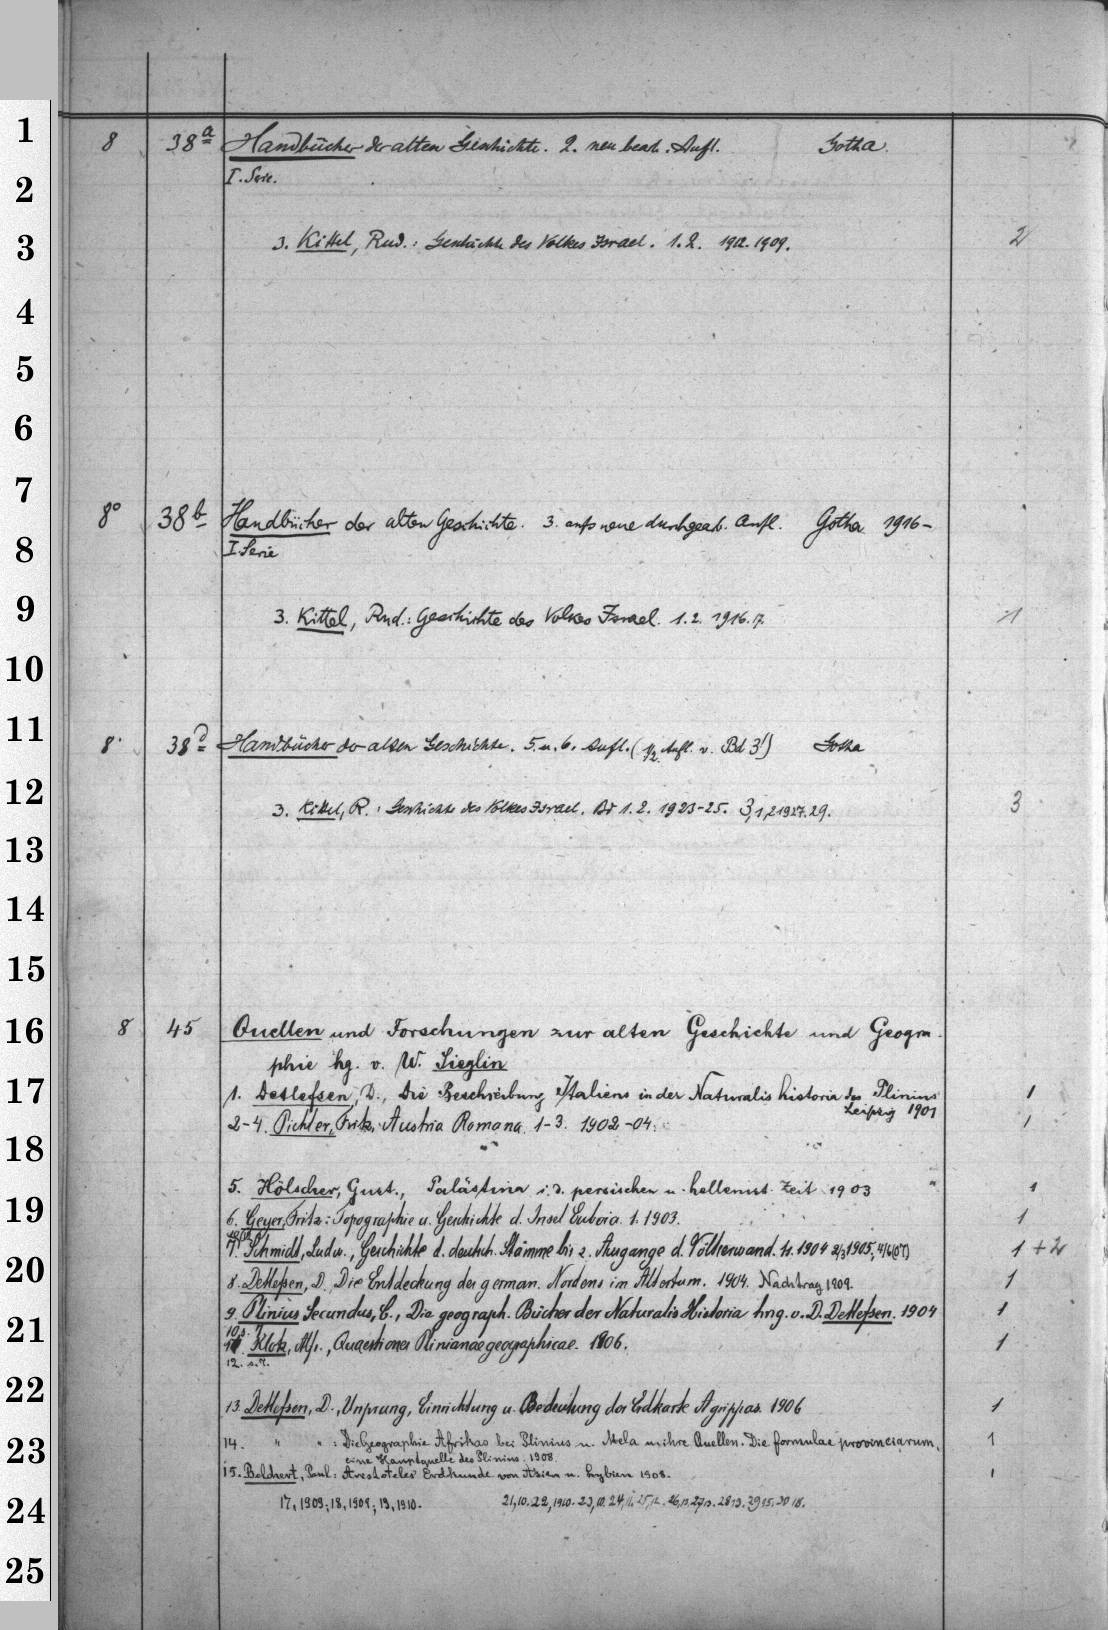 1
8 38a Handbücher der alten Geschichte. 2. neu bearb. Aufl. Gotha.
2
I. Serie.
3
3. Kittel, Rud.: Geschichte des Volkes Israel. 1.2. 1912.1909. 2
4
5
6
7
8° 38b Handbücher der alten Geschichte. 3. aufs neue durchgearb. Aufl. Gotha 1916-
8
I Serie
9
3. Kittel, Rud.: Geschichte des Volkes Israel. 1.2. 1916.17. 1
10
11
8° 38d Handbücher der alten Geschichte. 5. u. 6. Aufl. (1/2. Aufl. v. Bd 3') Gotha
12
3. Kittel, R.: Geschichte des Volkes Israel. Bd 1.2. 1923-25. 3,1,2 1927.29. 3
13
14
15
16
8 45 Quellen und Forschungen zur alten Geschichte und Geogra-
phie hg. v. W. Sieglin
17
1. Detlefsen, D., Die Beschreibung Italiens in der Naturalis historia des Plinius 1
Leipzig 1901
2-4. Pichler, Fritz, Austria Romana 1-3. 1902-04. 1
18
5. Hölscher, Gust., Palästina i. d. persischen u. hellenist. Zeit 1903 " 1
19
6. Geyer, Fritz: Topographie u. Geschichte d. Insel Euboia. 1. 1903. 1
7. Schmidt, Ludw., Geschichte d. deutsch. Stämme bis z. Ausgange d. Völkerwand. H. 1904 2/3 1905, 4/6 (07) 1 + 2
20
8. Detlefsen, D. Die Entdeckung des german. Nordens im Altertum. 1904. Nachtrag 1909. 1
9. Plinius Secundus, C., Die geograph. Bücher der Naturalis Historia hrsg. v. D. Detlefsen. 1904 1
21
11 Klotz, Alfr., Quaestiones Plinianae geographicae. 1906. 1
12. s. 7.
22
13. Detlefsen, D., Ursprung, Einrichtung u. Bedeutung der Erdkarte Agrippas. 1906 1
23
14. " " : Die Geographie Afrikas bei Plinius u. Mela u. ihre Quellen. Die formulae provinciarum, 1
eine Hauptquelle des Plinius. 1908.
15. Bolchert, Paul: Aristoteles Erdkunde von Asien u. Lybien 1908. 1
24
17, 1909; 18, 1908; 19, 1910.
25